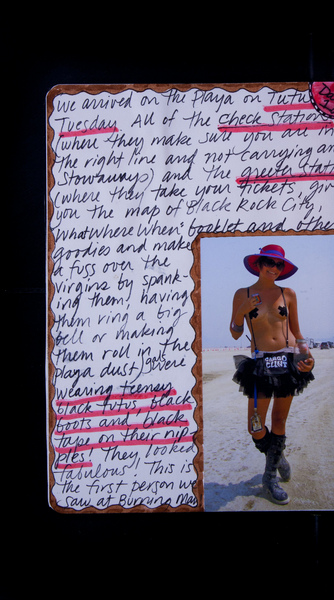 we arrived on the Playa on Tutu
Tuesday. All of the check station
(where they make sure you are in
the right line and not carrying an
stowaways) and the greeter stat
(where they take your tickets, giv
you the map of Black Rock City,
What Where When booklet and othe
goodies and make
a fuss over the
virgins by spank-
ing them, having
them ring a big
bell or making
them roll in the
playa dust) were
gals
wearing teensy
black tutus, black
boots and black
tape on their nip-
ples! They looked
fabulous! This is
the first person we
saw at Burning Man